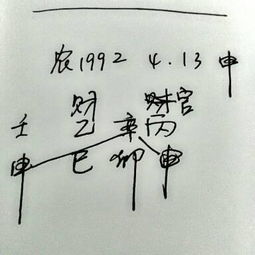 农1992 4.13 申
财 财官
壬 乙 辛 丙
申 巳 卯 申